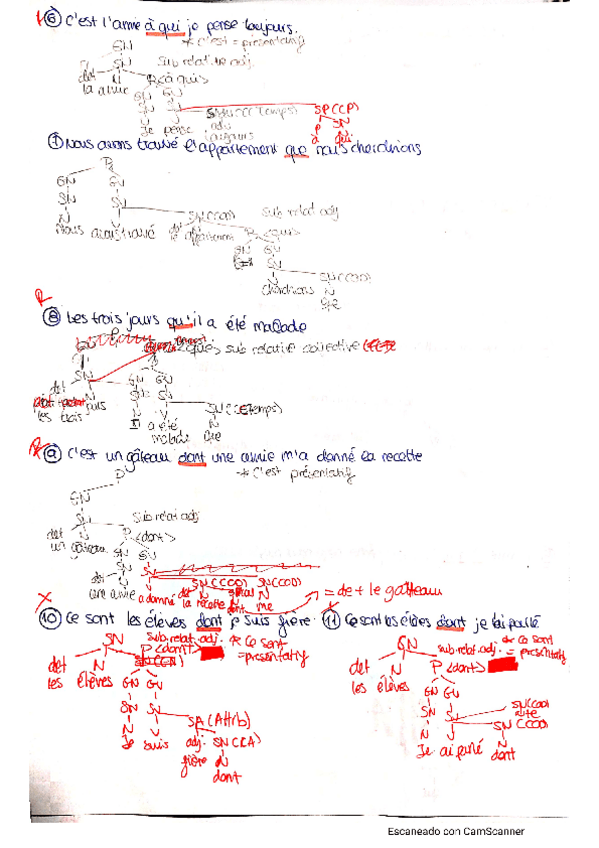 ⑥ C'est l'amie à qui je pense toujours.
* C'est = présentatif
GN
SN Sub relat. adj.
det N P<à qui>
la amie GN GV
SN SV
N V SN(CC temps) SP(CP)
Je pense adv P SN
toujours à N
qui
⑦ Nous avons trouvé l'appartement que nous cherchions
P
GN GV
SN SV
N V SN(COD) Sub relat adj
Nous avons trouvé det N P<que>
GN GV
SV
V SN(COD)
cherchions N
R
⑧ Les trois jours qu'il a été malade
GN
SN <que> sub relative
det N GN GV
les trois jours SN SV
N V SN(CCTemps)
Il a été N
malade que
⑨ C'est un gâteau dont une amie m'a donné la recette
P * C'est présentatif
GN
SN Sub relat adj
det N P <dont>
un gâteau GN GV
SN SV
det N V SN(COD) SN(COI)
une amie a donné det N N
la recette dont me
= de + le gâteau
X
⑩ Ce sont les élèves dont je suis fière
SN sub. relat. adj. * Ce sont
det N P<dont> =présentatif
les élèves GN GV
SN SV
N V SA (Attrib)
Je suis adj. SN(CA)
fière N
dont
⑪ Ce sont les élèves dont je t'ai parlé
GN * Ce sont
det N sub. relat. adj. = présentatif
les élèves P <dont>
GN GV
SN SV SN(COI)
N V SN(COI)
Je ai parlé N
dont
Escaneado con CamScanner